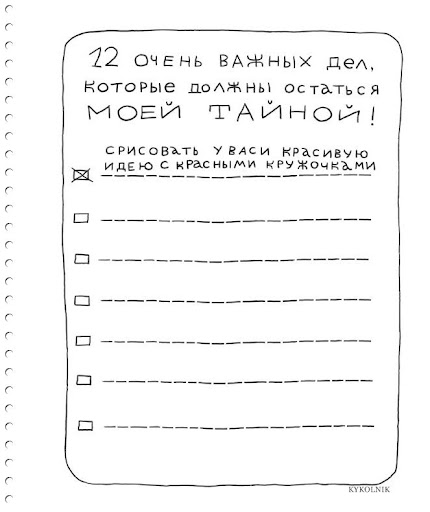 12 ОЧЕНЬ ВАЖНЫХ ДЕЛ,
КОТОРЫЕ ДОЛЖНЫ ОСТАТЬСЯ
МОЕЙ ТАЙНОЙ!
СРИСОВАТЬ У ВАСИ КРАСИВУЮ
ИДЕЮ С КРАСНЫМИ КРУЖОЧКАМИ
KYKOLNIK